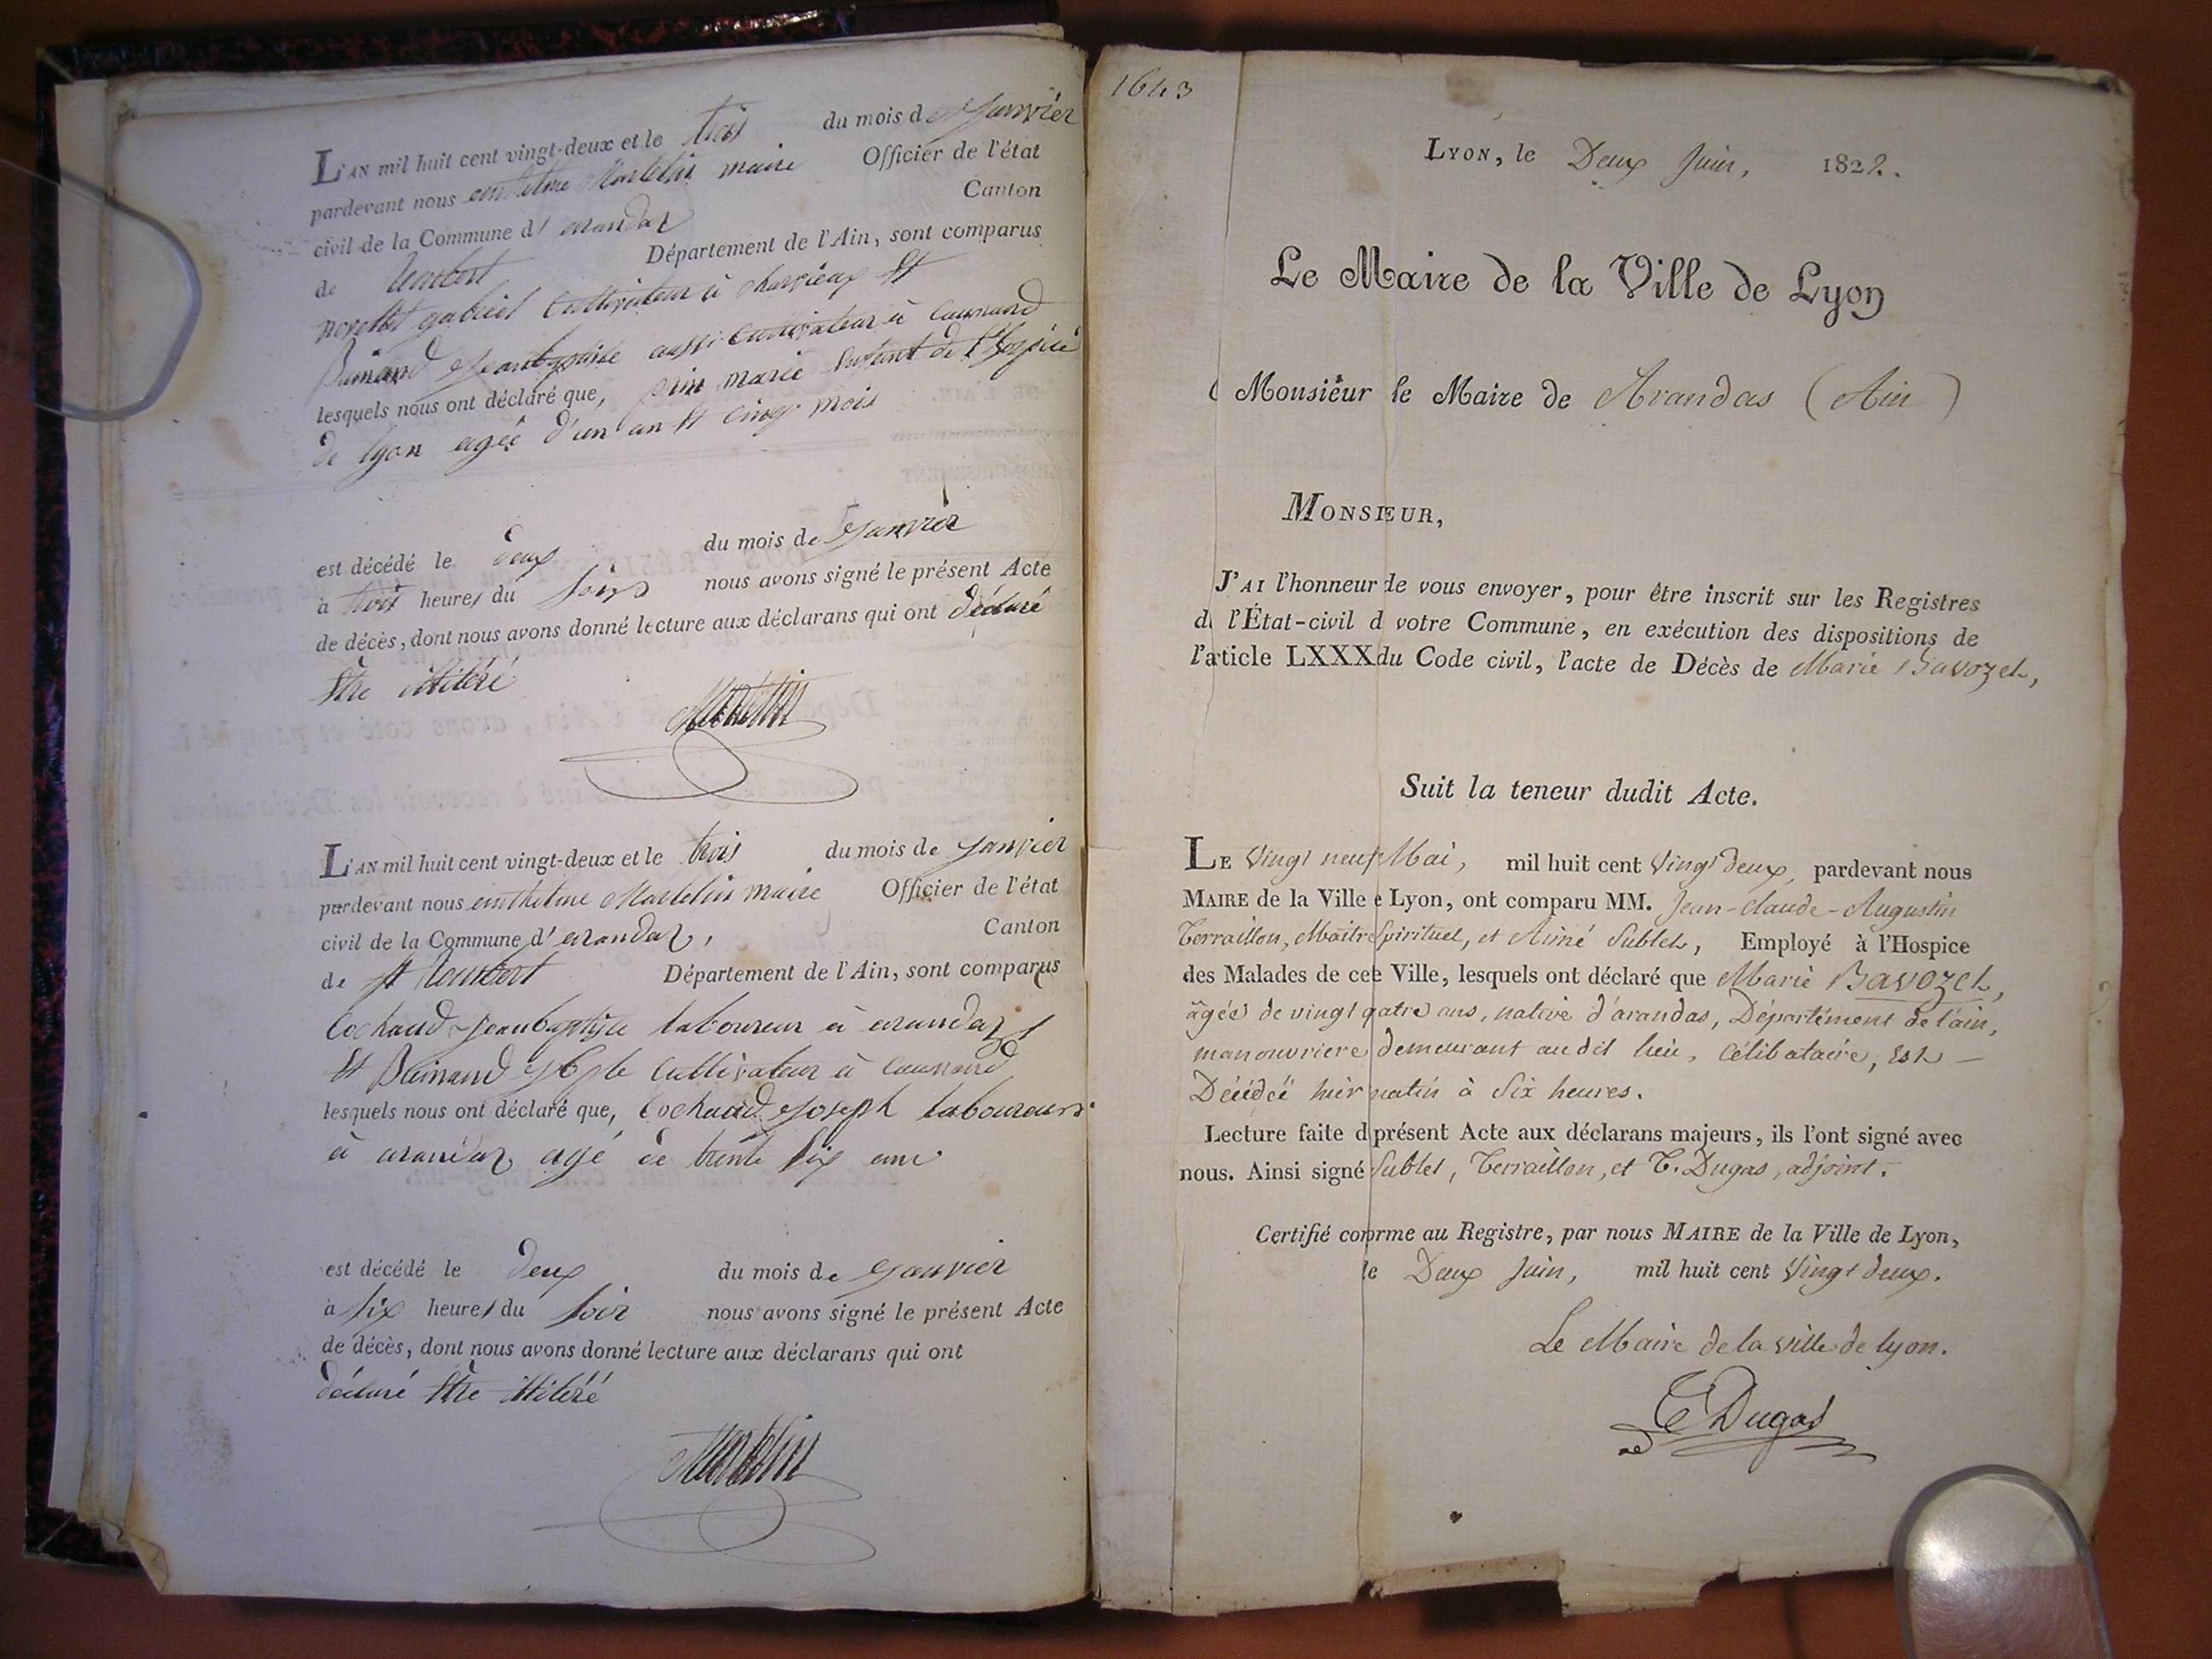 L'AN mil huit cent vingt-deux et le trois du mois de Janvier
pardevant nous enthelme Martelin maire Officier de l'état
civil de la Commune d' arandaz Canton
de Département de l'Ain, sont comparus
gabriel Cultivateur à charvieux et
jeanbaptiste aussi Cultivateur à
lesquels nous ont déclaré que, marie Enfant de l'hospice
de lyon agée d'un an et cinq mois
est décédé le deux du mois de Janvier
à trois heures du soir nous avons signé le présent Acte
de décès, dont nous avons donné lecture aux déclarans qui ont déclaré
être illitéré
Martelin
L'AN mil huit cent vingt-deux et le trois du mois de janvier
pardevant nous enthelme Martelin maire Officier de l'état
civil de la Commune d' arandaz, Canton
de st Département de l'Ain, sont comparus
Cochaud jeanbaptiste laboureur à arandaz
et Cultivateur à
lesquels nous ont déclaré que, Cochaud joseph laboureur
à arandaz agé de trente six ans
est décédé le deux du mois de Janvier
à six heures du soir nous avons signé le présent Acte
de décès, dont nous avons donné lecture aux déclarans qui ont
déclaré être illitéré
Martelin
1643
LYON, le Deux Juin, 1822.
Le Maire de la Ville de Lyon
Monsieur le Maire de Arandas (Ain)
MONSIEUR,
J'AI l'honneur de vous envoyer, pour être inscrit sur les Registres
de l'État-civil d votre Commune, en exécution des dispositions de
l'article LXXX du Code civil, l'acte de Décès de Marie Bavozet,
Suit la teneur dudit Acte.
LE Vingt neuf Mai, mil huit cent Vingt deux, pardevant nous
MAIRE de la Ville e Lyon, ont comparu MM. Jean-Claude-Augustin
Terraillon, Maitre Spirituel, et Aimé Sublet, Employé à l'Hospice
des Malades de cee Ville, lesquels ont déclaré que Marie Bavozet,
âgée de vingt qatre ans, native d'arandas, Département de l'ain,
manouvriere demeurant audit lieu, Célibataire, Est —
Décédée hier matin à Six heures.
Lecture faite d présent Acte aux déclarans majeurs, ils l'ont signé avec
nous. Ainsi signé Sublet, Terraillon, et T. Dugas, adjoint.
Certifié conrme au Registre, par nous MAIRE de la Ville de Lyon,
le Deux Juin, mil huit cent Vingt deux.
Le Maire de la Ville de lyon.
Dugas